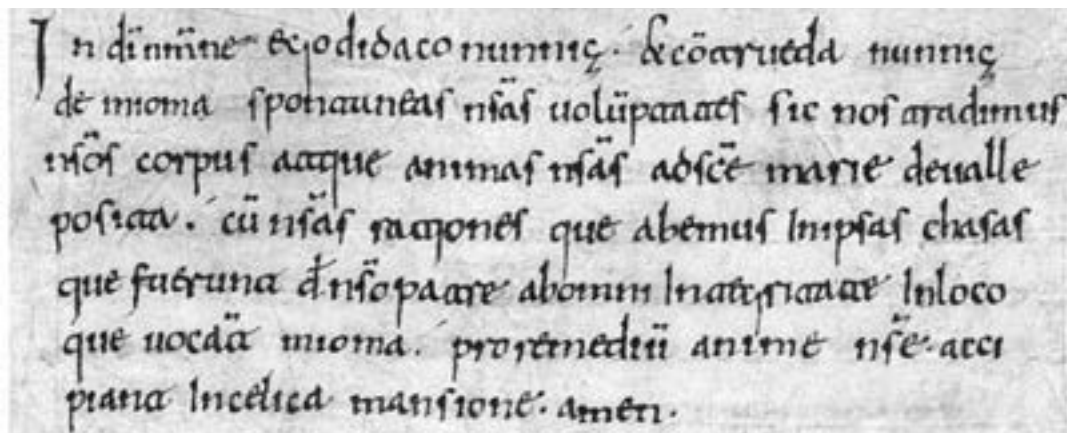 In dı̅ nm̅ne ego didaco nunniç. & co̅trueda nunniç
de mioma spontuneas nsa̅s volu̅ptates sic nos tradimus
nso̅s corpus atque animas nsa̅s ad sce̅ marie de valle
posita. cu̅ nsa̅s rationes que abemus In ipsas chasas
que fuerunt d̅ nso̅ patre ab omni Integritate In loco
que vocat̅ mioma. pro remediu̅ anime nse̅. acci
piant In celica mansione. amen.